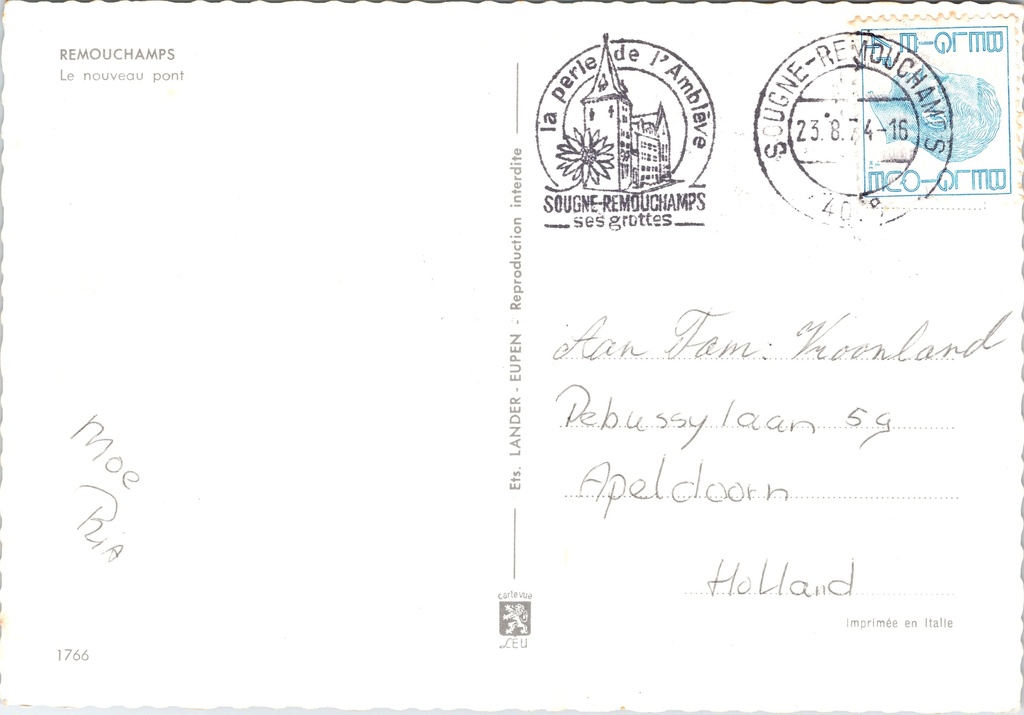 REMOUCHAMPS
Le nouveau pont
la perle de l'Amblève
SOUGNE-REMOUCHAMPS
ses grottes
SOUGNE-REMOUCHAMPS
23.8.74-16
BELGIE
BELGIQUE
Ets. LANDER - EUPEN - Reproduction interdite
Aan Fam: Vroonland
Debussylaan 59
Apeldoorn
Holland
Moe
Ria
carte vue
LEU
Imprimée en Italie
1766